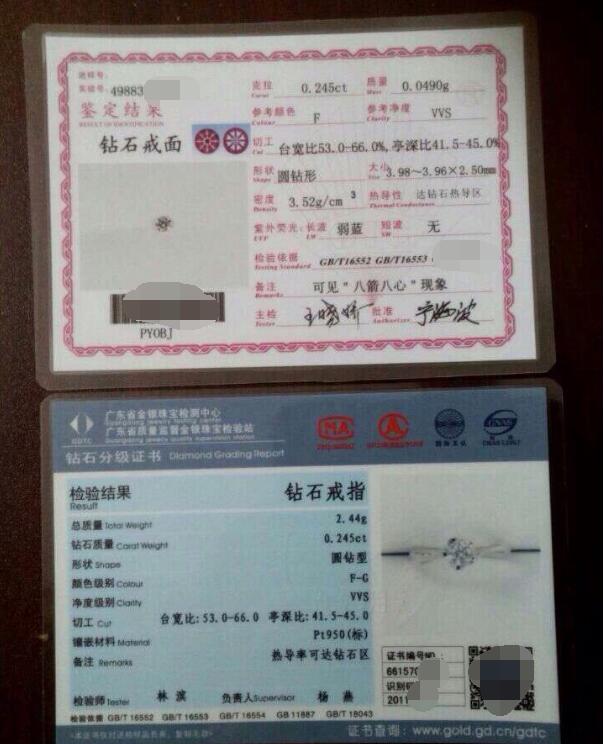 送样号:
实验号: 49883
鉴定结果
RESULT OF IDENTIFICATION
钻石戒面
PYOBJ
克拉 Carat 0.245ct 质量 Mass 0.0490g
参考颜色 Colour F 参考净度 Clarity VVS
切工 Cut 台宽比53.0-66.0%,亭深比41.5-45.0%
形状 Shape 圆钻形 大小 Size 3.98~3.96×2.50mm
密度 Density 3.52g/cm³ 热导性 Thermal Conductance 达钻石热导区
紫外荧光: UVF 长波 LW 弱蓝 短波 SW 无
检验依据 Testing Standard GB/T16552 GB/T16553
备注 Remarks 可见"八箭八心"现象
主检 Tester 批准 Authorizer
GDTC
广东省金银珠宝检测中心
Guangdong jewelry testing center
广东省质量监督金银珠宝检验站
Guangdong jewelry quality supervision station
钻石分级证书 Diamond Grading Report
MA
CNAS
检验结果 Result 钻石戒指
总质量 Total Weight 2.44g
钻石质量 Carat Weight 0.245ct
形状 Shape 圆钻型
颜色级别 Colour F-G
净度级别 Clarity VVS
切工 Cut 台宽比:53.0-66.0 亭深比:41.5-45.0
镶嵌材料 Material Pt950(标)
备注 Remarks 热导率可达钻石区
检验师 Tester 林滨 负责人 Supervisor 杨燕
检验依据 GB/T 16552 GB/T 16553 GB/T 16554 GB 11887 GB/T 18043
证书编号NO.:
66157
识别码
2011
证书查询: www.gold.gd.cn/gdtc